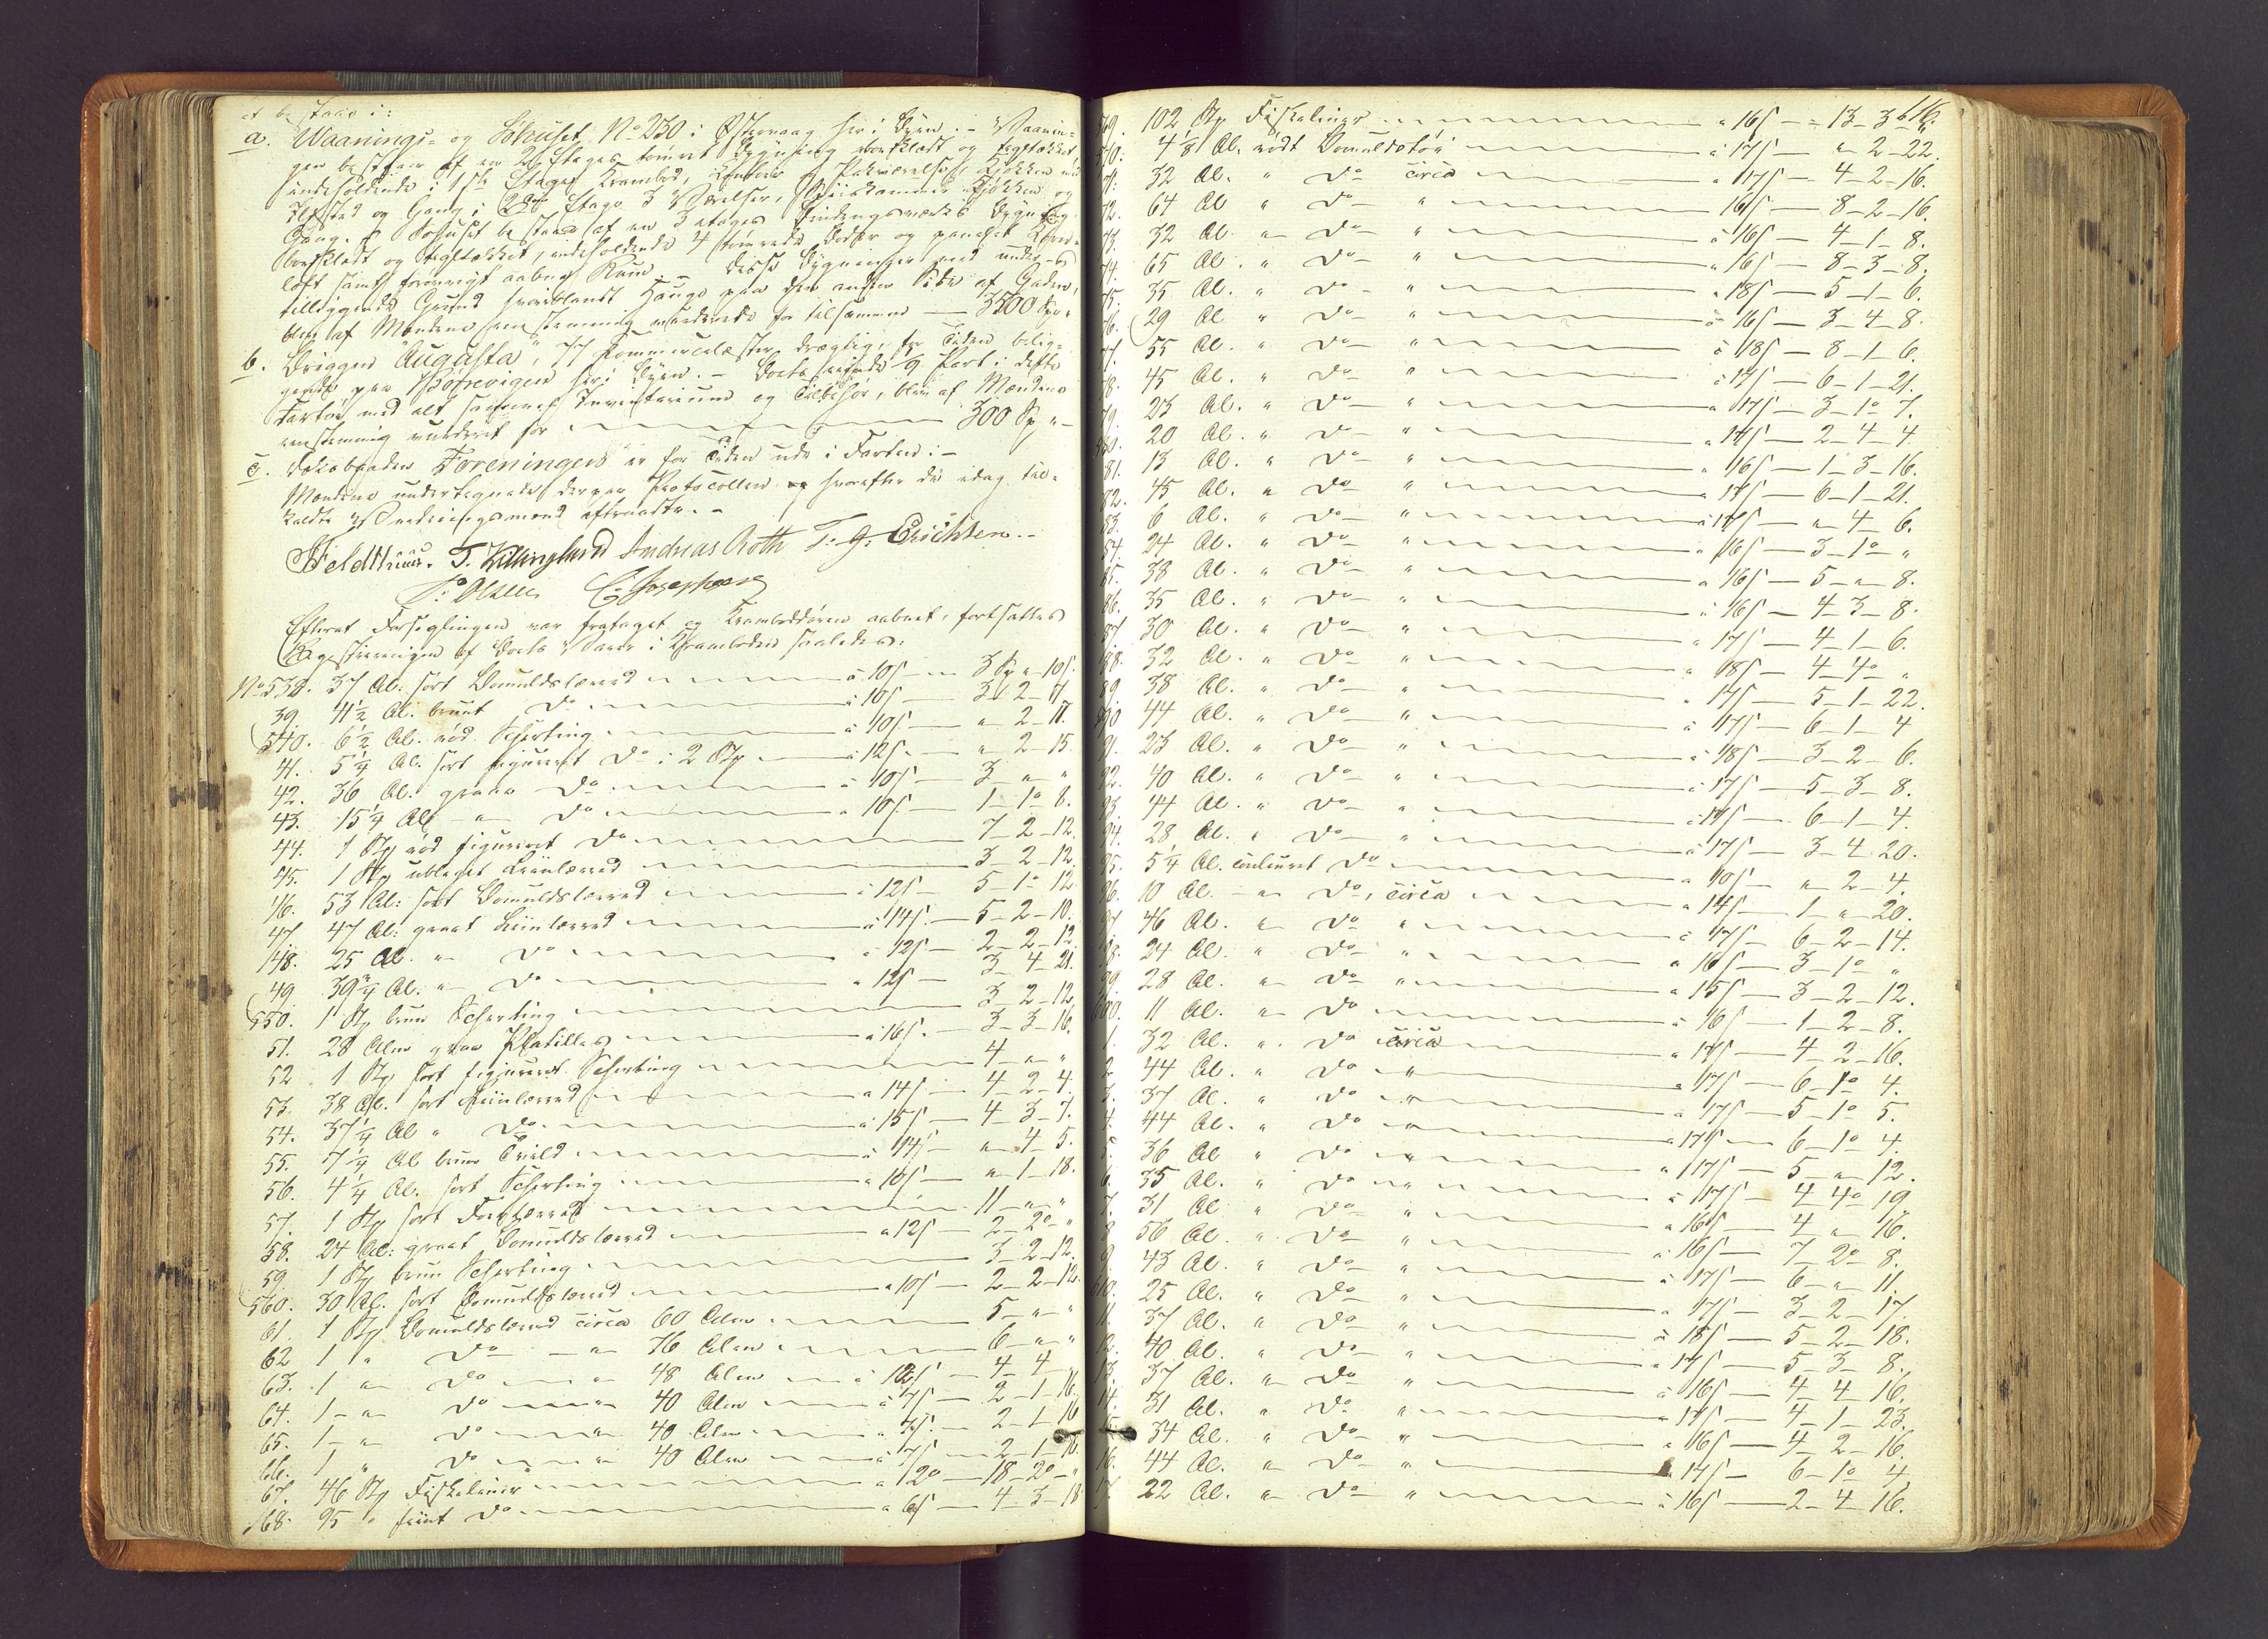 at bestaae i:
a. Waanings- og Søhuset No 230 i Østervaag her i Byen. - Vaanin-
gen bestaar af en 2 Etages tømret Bygning bordklædt og tegltækket
indeholdende i 1ste Etage Krambod, Contoir og Pakværelse, Kjøkken med
Ildsted og Gang; i 2den Etage 3 Værelser, Spiiskammer Kjøkken og
Gang. Søhuset bestaar af en 3 etages Bindingsværks Bygning
bordklædt og tegltækket, indeholdende 4 tømrede Boder og panelet Korn-
loft samt forøvrigt aabne Rum. - Disse Bygninger med under-
tilliggende Grund hvoriblandt Hauge paa den anden Side af Gaden,
blev af Mændene eenstemmig vurderede for tilsammen — 3500 Spd.
b. Briggen "Augusta", 77 Kommercelæster drægtig, for Tiden belig-
gende paa her i Byen. - Boets eiende Part i dette
Fartøi med alt Inventarium og Tilbehør, blev af Mændene
eenstemmig vurderet for — 300 Sp "-
c. Foreningen er for Tiden ude i Farten: -
Mændene undertegnede derpaa Protocollen og hvorefter de idag til-
kaldte Vurderingsmænd aftraadte. -
Feldthuus. T. Killinglund Andreas Roth T. G. Erichsen..
P. Olsen C. Josephsen
Efterat Forseglingen var fratagen og Kramboddøren aabnet, fortsattes
Registreringen af Boets Varer i Kramboden saaledes:
No 538. 37 Al: sort Bomuldslærred à 10ſ — 3 Sp " 10ſ.
39. 41½ Al. bruunt Do à 10ſ — 3 2 7.
540. 6½ Al. rød Scherting à 10ſ — " 2 17.
41. 5¼ Al. sort figureret Do i 2 Stk à 12ſ — " 2 15.
42. 36 Al. graae Do à 10ſ — 3 " "
43. 15¼ Al. " Do à 10ſ — 1 1 8.
44. 1 Stk rød figureret Do — 7 2 12.
45. 1 Stk ubleget Liinlærred — 3 2 12.
46. 53 Al: sort Bomuldslærred à 12ſ — 5 1 12
47. 47 Al: graat Liinlærred à 14ſ — 5 2 10.
148. 25 Al. " Do à 12ſ — 2 2 12.
49 39¾ Al. " Do à 12ſ — 3 4 21.
550. 1 Stk bruun Scherting — 3 2 12.
51. 28 Alen graae Platilles à 16ſ — 3 3 16.
52 1 Stk sort figureret Scherting — 4 " "
53. 38 Al. sort Liinlærred à 14ſ — 4 2 4.
54. 37¼ Al " Do à 15ſ — 4 3 7.
55. 7¼ Al bruun Tvild à 14ſ — " 4 5.
56. 4¼ Al. sort Scherting à 10ſ — " 1 18.
57. 1 Stk sort Foerlærred — 11 " "
58. 24 Al: graat Bomuldslærred à 12ſ — 2 2 "
59. 1 Stk bruun Scherting — 3 2 12.
560. 30 Al. sort Bomuldslærred à 10ſ — 2 2 12.
61. 1 Stk Bomuldslærred circa 60 Alen — 5 " "
62 1 " Do " 76 Alen — 6 " "
63. 1 " Do " 48 Alen à 12ſ — 4 4 "
64. 1 " Do " 40 Alen à 7ſ — 2 1 16.
65. 1 " Do " 40 Alen à 7ſ — 2 1 16
66. 1 " Do " 40 Alen à 7ſ — 2 1 16.
67. 46 Stk Fiskeliner à 2 — 18 2 "
568. 95 " fiint Do à 6ſ — 4 3 18
116.
569. 102 Stk Fiskeliner à 16ſ — 13 3
570. 4⅛ Al. rødt Bomuldstøi à 17ſ — " 2 22.
71. 32 Al. " Do circa à 17ſ — 4 2 16.
72. 64 Al " Do " 16ſ — 8 2 16.
73. 32 Al. " Do " à 16ſ — 4 1 8.
74. 65 Al. " Do " à 16ſ — 8 3 8.
75. 35 Al. " Do " à 18ſ — 5 1 6.
76. 29 Al " Do " à 16ſ — 3 4 8.
77. 55 Al. " Do " à 18ſ — 8 1 6.
78. 45 Al. " Do " à 17ſ — 6 1 21.
79. 23 Al. " Do " à 17ſ — 3 1 7.
580. 20 Al. " Do " à 17ſ — 2 4 4
81. 13 Al. " Do " à 16ſ — 1 3 16.
82. 45 Al. " Do " à 17ſ — 6 1 21.
83. 6 Al. " Do " à 17ſ — " 4 6.
84. 24 Al. " Do " à 16ſ — 3 1 "
85. 38 Al. " Do " à 16ſ — 5 " 8.
86. 35 Al. " Do " à 16ſ — 4 3 8.
87. 30 Al. " Do " à 17ſ — 4 1 6.
88. 32 Al. " Do " à 18ſ — 4 4 "
89. 38 Al. " Do " 17ſ — 5 1 22.
590 44 Al. " Do " à 17ſ — 6 1 4
91. 23 Al. " Do " à 18ſ — 3 2 6.
92. 40 Al. " Do " à 17ſ — 5 3 8.
93. 44 Al. " Do " à 17ſ — 6 1 4.
94. 28 Al. " Do " à 17ſ — 3 4 20.
95. 5¼ Al. couleuret Do à 10ſ — " 2 4.
96. 10 Al. " Do, circa à 14ſ — 1 " 20.
97. 46 Al. " Do " à 17ſ — 6 2 14.
98. 24 Al. " Do " à 16ſ — 3 1 "
99. 28 Al. " Do " à 15ſ — 3 2 12.
600. 11 Al. " Do à 16ſ — 1 2 8.
1. 32 Al. " Do circa à 17ſ — 4 2 16.
2 44 Al. " Do " à 17ſ — 6 1 4.
3. 37 Al. " Do " à 17ſ — 5 1 5.
4. 44 Al. " Do " à 17ſ — 6 1 4.
5. 36 Al " Do " à 17ſ — 5 " 12.
6. 35 Al. " Do " à 17ſ — 4 4 19.
7. 31 Al " Do " à 16ſ — 4 " 16.
8 56 Al. " Do " à 16ſ — 7 2 8.
9 43 Al. " Do " à 17ſ — 6 " 11.
610. 25 Al. " Do " à 17ſ — 3 2 17.
11. 37 Al. " Do " à 18ſ — 5 2 18.
12. 40 Al. " Do " à 17ſ — 5 3 8.
13. 37 Al. " Do " à 16ſ — 4 4 16.
14. 31 Al. " Do " à 17ſ — 4 1 23.
15. 34 Al. " Do " à 16ſ — 4 2 16.
16. 44 Al. " Do " 17ſ — 6 1 4.
17. 22 Al. " Do " à 16ſ — 2 4 16.